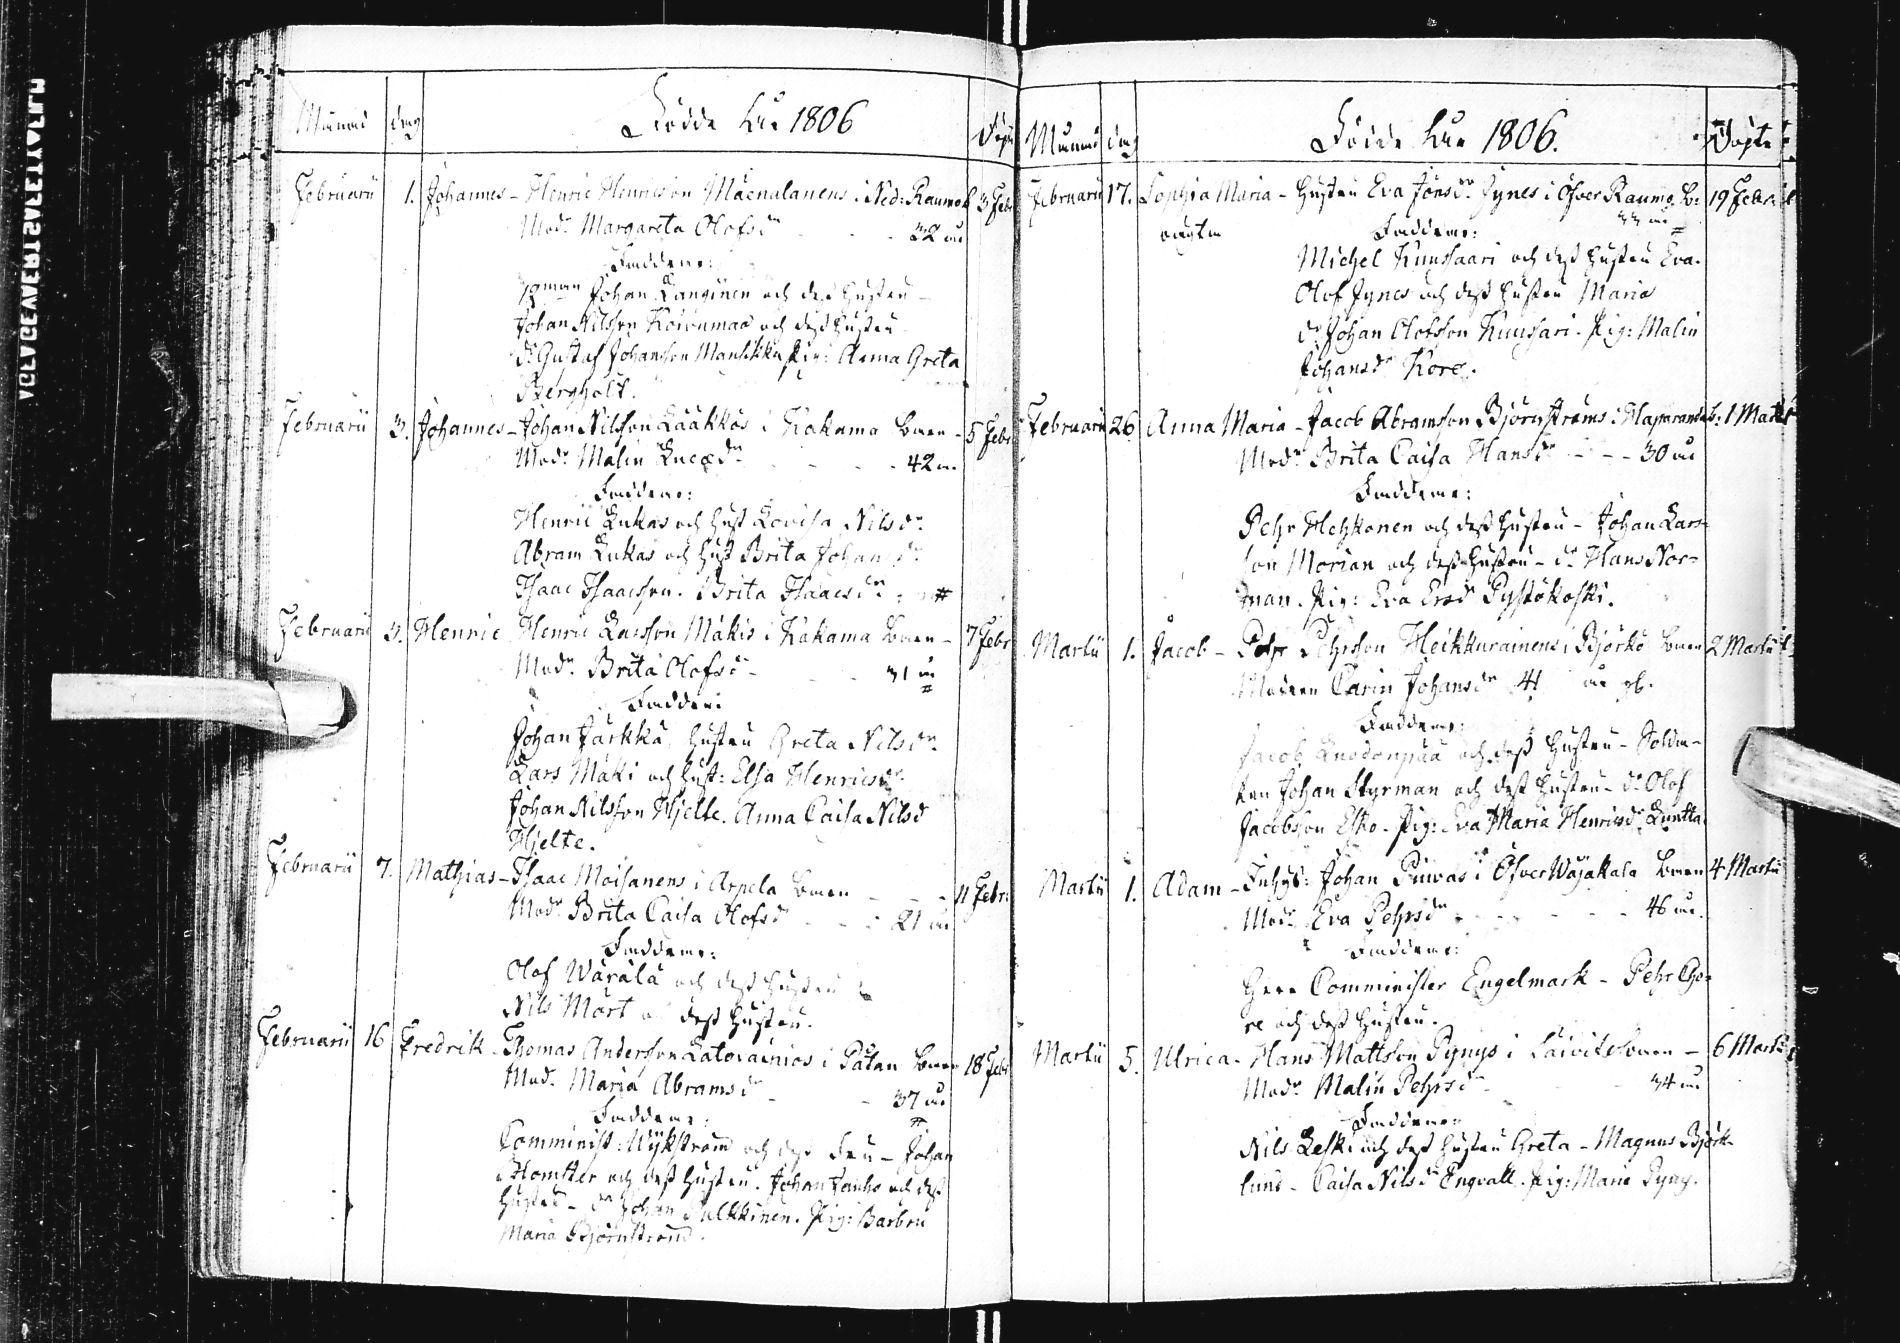 Månad dag Födde År 1806 Döpte
Februarii 1. Johannes - Henric Henricson Mäenalanens i Ned: Raumo b. 3 Febr
Modr Margareta Olofsdr 32 år
Faddrar:
Johan Langinen och dess hustru
Johan Nilsson Koivumaa och dess hustru
dr Gustaf Johansson Pig: Anna Greta
Bergholt.
Februarii 3. Johannes - Johan Nilsson Lääkkös i Kakama byen - 5 Febr
Modr Malin Lucædr 42 år
Faddrar:
Henric Lukas och hust Lovisa Nilsdr
Abram Lukas och hust Brita Johansdr
Isaac Isaacsson. Brita Isaacsdr
Februarii 3. Henric Henric Larsson Mäkis i Kakama byen - 7 Febr
Modr Brita Olofsdr 31 år
Faddrar:
Johan Järkkä hustru Greta Nilsdr
Lars Mäki och hust: Elsa Henricsdr
Johan Nilsson Hjelte. Anna Caisa Nilsd
Hjelte.
Februarii 7. Mathias - Isaac Moisanens i Arpela byen 11 Febr:
Modr Brita Caisa Olofsd 21 år
Faddrar:
Olof Wärälä och dess hustru
Nils Mört o dess hustru.
Februarii 16 Fredrik - Thomas Andersson Latvainios i Päkan byen 18 Febr
Mod. Maria Abramsdr 37 år
Faddrar:
Comminist: Wijkström och dess Fru - Johan
och dess hustru. Johan Janho och dess
hustru - dr Johan Pulkkinen. Pig: Barbru
Maria Björnström.
Månad dag Födde År 1806. Döpte
Februarii 17. Sophia Maria - hustru Eva Jönsdr Jynes i Öfver Raumo b: 19 Febr:
oägta 33 år
Faddrar:
Michel Kuusaari och dess hustru Eva.
Olof Jynes och dess hustru Maria
dr Johan Olofsson Kuusari. Pig: Malin
Johansdr Kore.
Februarii 26 Anna Maria - Jacob Abramsson Björnströms i Haparanda b: 1 Martii
Modr Brita Caisa Hansdr - - - 30 år
Faddrar:
Pehr Hehkonen och dess hustru - Johan Lars-
son Morian och dess hustru - dr Hans Nor-
man. Pig: Eva Ersdr Pystökoski.
Martii 1. Jacob - Pehr Pehrsson Heikkurainens i Björkö byen 2 Martii
Modren Carin Johansdr 41 år gl.
Faddrar:
Jacob och dess hustru - Solda-
ten Johan Styrman och dess hustru - dr Olof
Jacobsson Esko. Pig: Eva Maria Henricsdr Luntta
Martii 1. Adam - Inhys: Johan Pinvas i Öfver Wojakala byen 4 Martii
Modr Eva Pehrsdr 46 år.
Faddrar:
Herr Comminister Engelmark - Pehr Cho-
re och dess hustru.
Martii 5. Ulrica - Hans Mattsson Pynys i Laivite byen - 6 Martii
Modr Malin Pehrsdr 34 år
Faddrar:
Nils Leski och dess hustru Greta - Magnus Björk-
lund - Caisa Nilsdr Engvall. Pig: Maria Pyny.